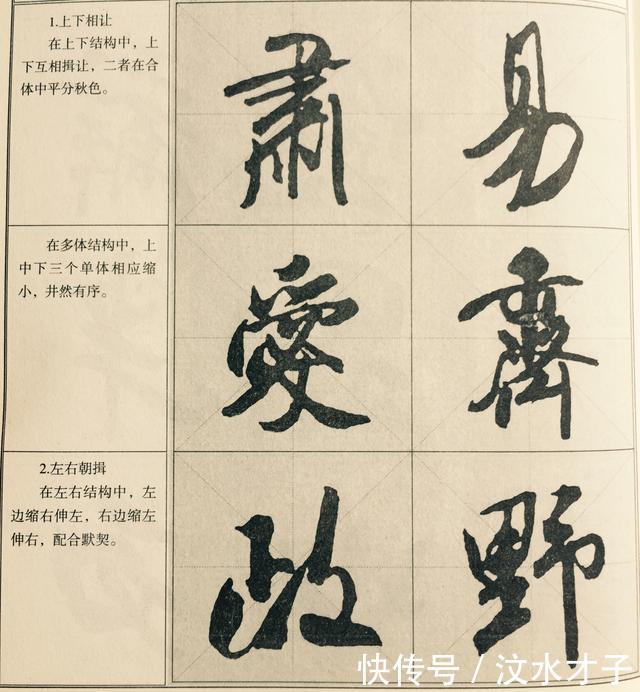 1.上下相让
在上下结构中，上
下互相揖让，二者在合
体中平分秋色。
肅 易
在多体结构中，上
中下三个单体相应缩
小，井然有序。
愛 齊
2.左右朝揖
在左右结构中，左
边缩右伸左，右边缩左
伸右，配合默契。
政 野
快传号 / 汶水才子